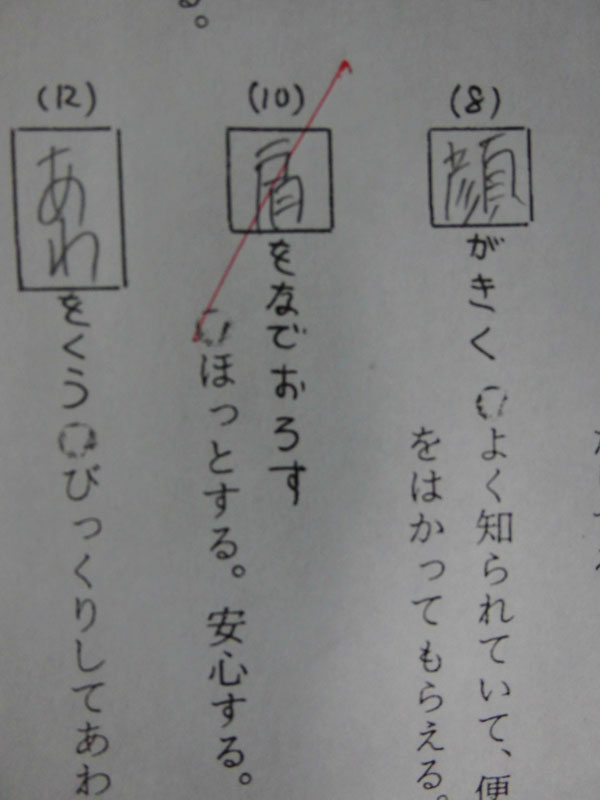 (8)
顔がきく よく知られていて、便
をはかってもらえる。
(10)
肩をなでおろす
ほっとする。安心する。
(12)
あわをくう びっくりしてあわ
る。